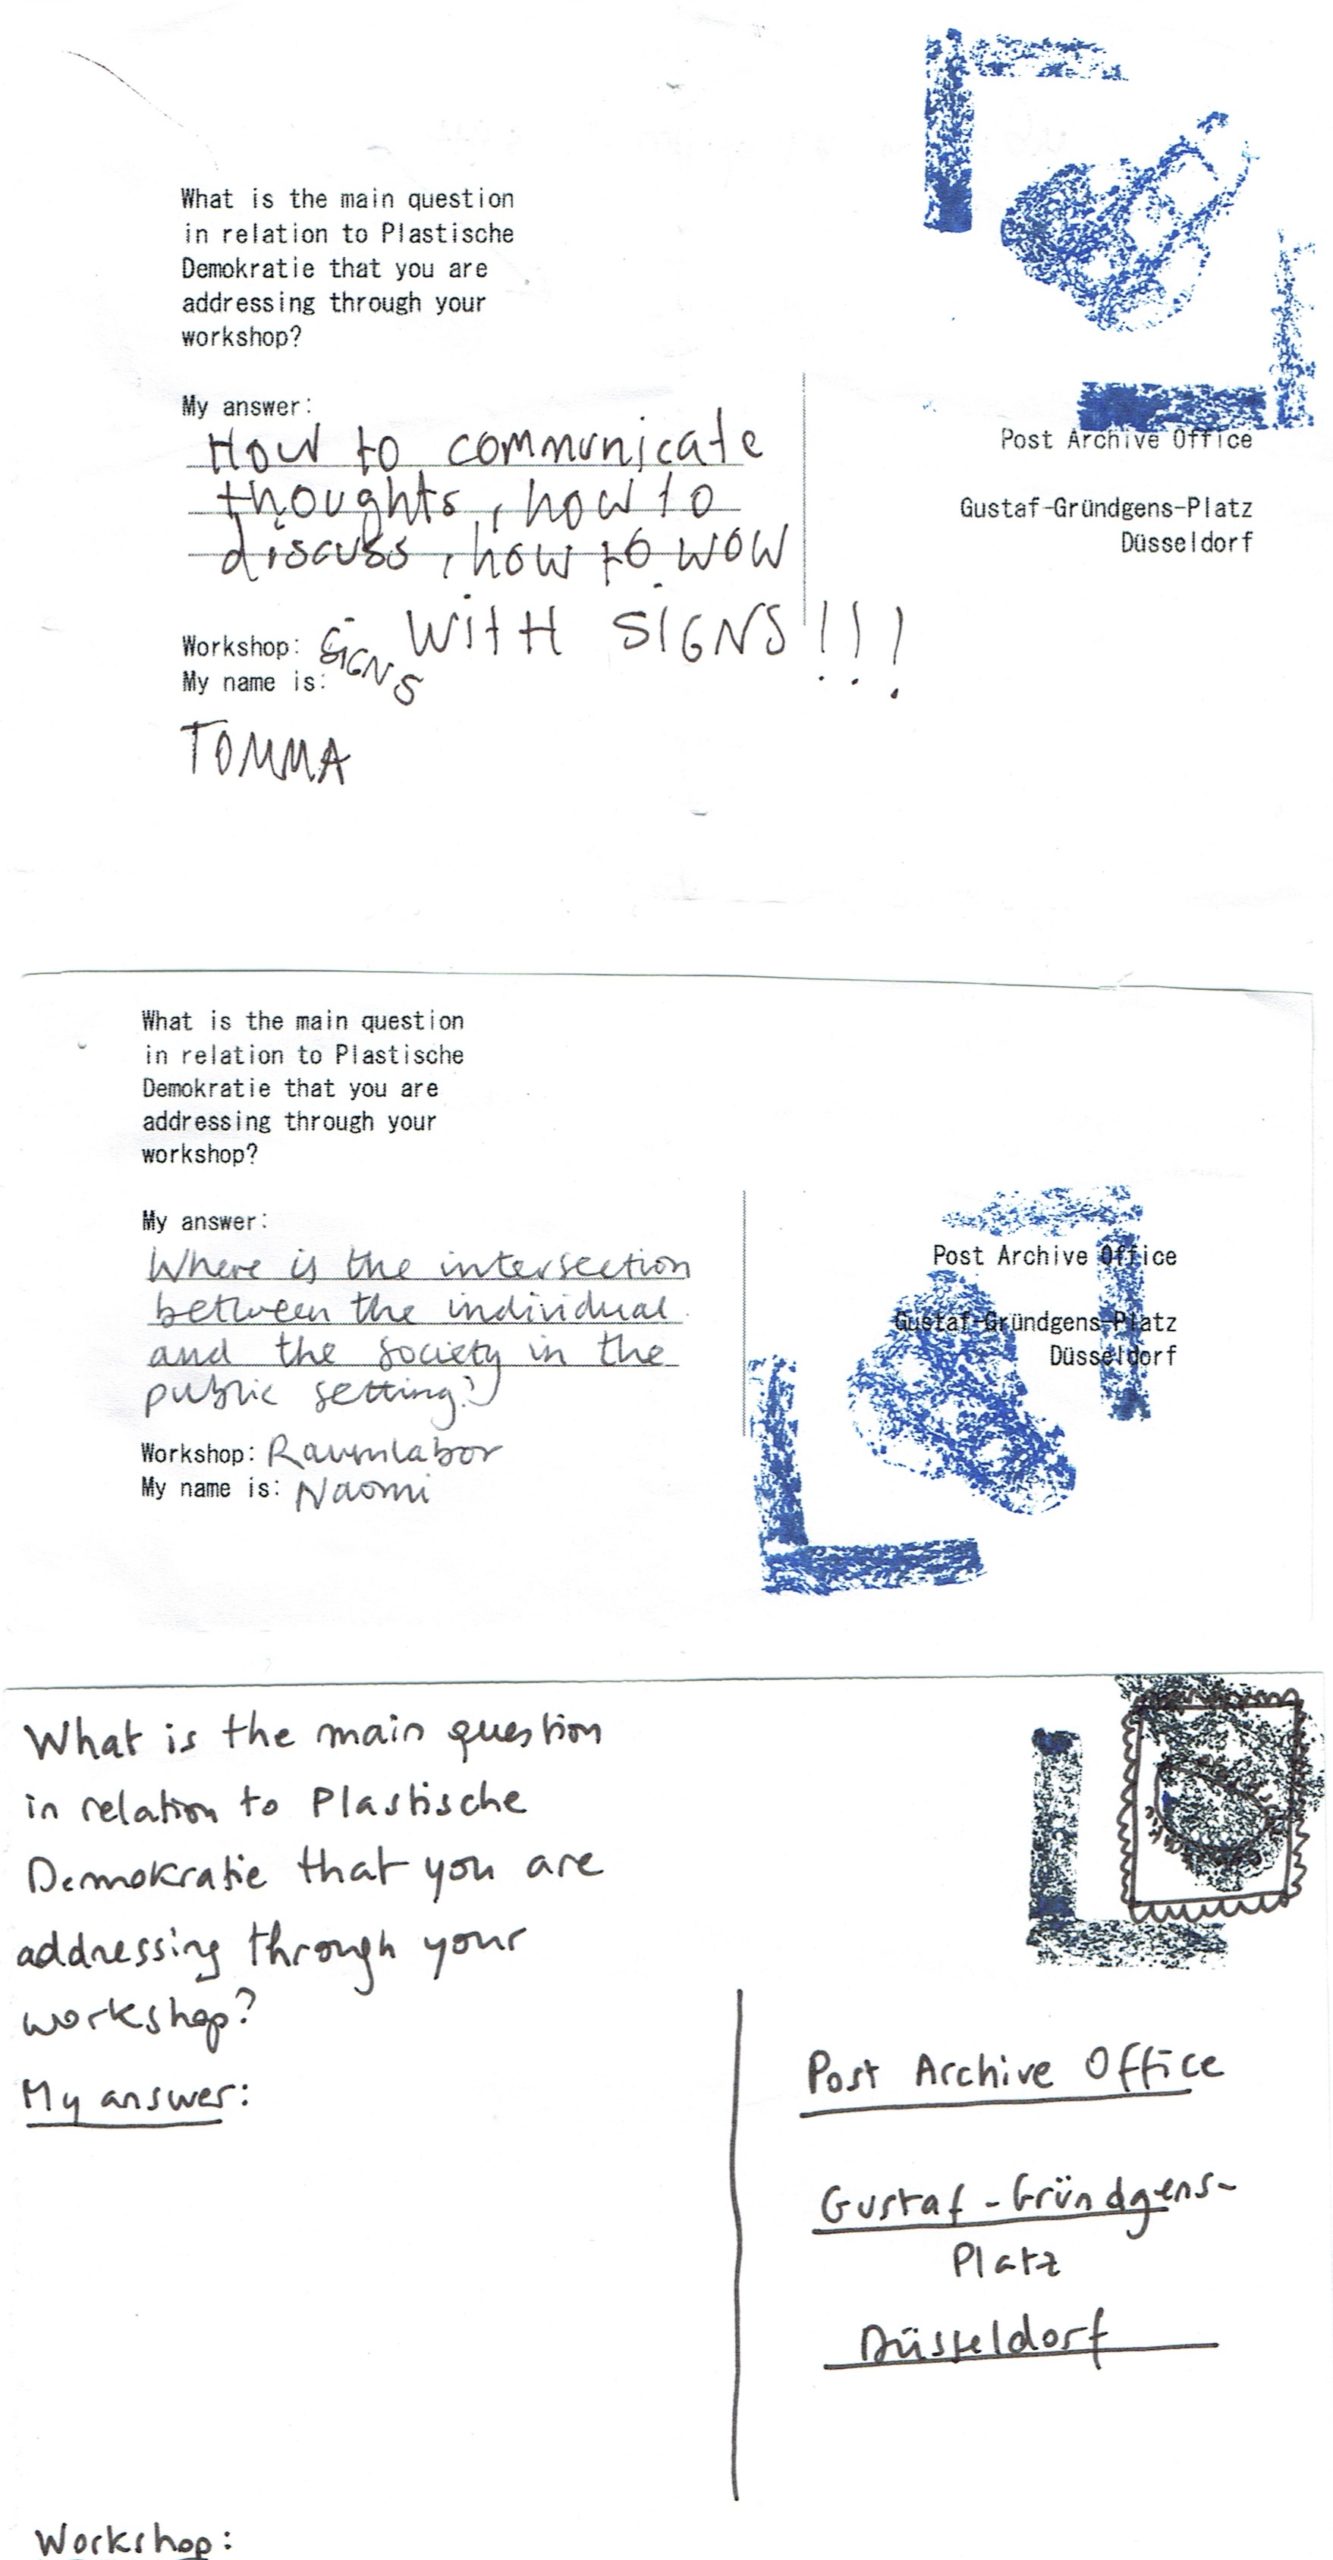 What is the main question
in relation to Plastische
Demokratie that you are
addressing through your
workshop?
My answer:
How to communicate
thoughts, how to
discuss, how to wow
WITH SIGNS!!!
Workshop: SIGNS
My name is:
TOMMA
Post Archive Office
Gustaf-Gründgens-Platz
Düsseldorf
What is the main question
in relation to Plastische
Demokratie that you are
addressing through your
workshop?
My answer:
Where is the intersection
between the individual
and the society in the
public setting?
Workshop: Raumlabor
My name is: Naomi
Post Archive Office
Gustaf-Gründgens-Platz
Düsseldorf
What is the main question
in relation to Plastische
Demokratie that you are
addressing through your
workshop?
My answer:
Workshop:
Post Archive Office
Gustaf-Gründgens-
Platz
Düsseldorf